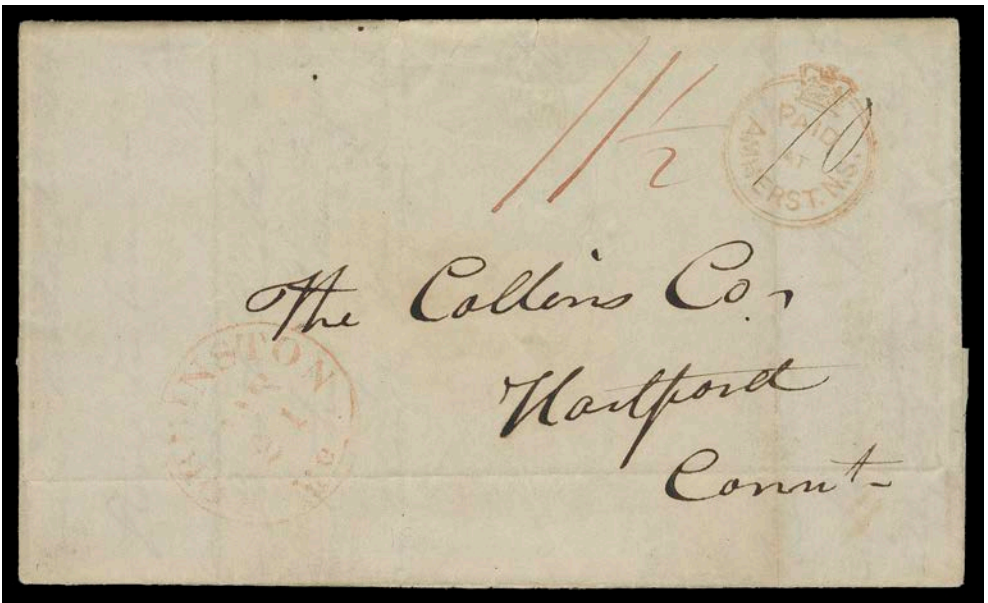 11½
PAID
AT
AMHERST. N.S.
10
The Collins Co.
Hartford
Connt